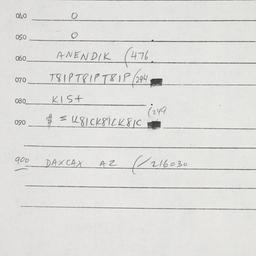 040 0
050 0
060 ANENDIK (476.
070 T81PT81PT81P (294
080 KIST
(249
090 $ = K81CK81CK81C
900 DAXCAX AZ (/216030